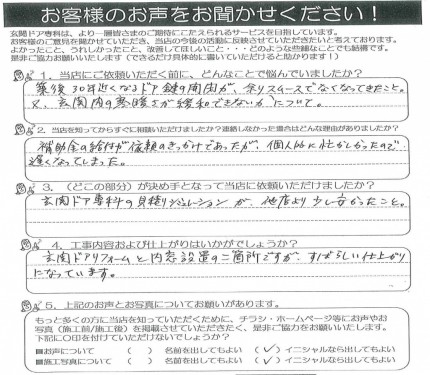 お客様のお声をお聞かせください！
玄関ドア専科は、より一層皆さまのご期待にこたえられるサービスを目指しています。
お客様のご意見をお聞かせいただき、当店の今後の活動に反映させていただきたいと考えております。
よかったこと、うれしかったこと、改善してほしいこと・・・どのような些細なことでも結構です。
是非ご協力お願いいたします（できるだけ具体的に書いていただけると助かります！）
1．当店にご依頼いただく前に、どんなことで悩んでいましたか？
築後30年近くなるとドア鍵の開閉が、余りスムースでなくなってきたこと。
又、玄関内の寒暖さが緩和できないかについて。
2．当店を知ってからすぐに相談いただけましたか？連絡しなかった場合はどんな理由がありましたか？
補助金の給付が依頼のきっかけであったが、個人的に忙がしかったので
遅くなってしまった。
3．（どこの部分）が決め手となって当店に依頼いただけましたか？
玄関ドア専科の見積りシュレーションが、他店より少し安かったこと。
4．工事内容および仕上がりはいかがでしょうか？
玄関ドアリフォームと内窓設置の二箇所ですが、すばらしい仕上がり
になっています。
5．上記のお声とお写真についてお願いがあります。
もっと多くの方に当店を知っていただくために、チラシ・ホームページ等にお声やお
写真（施工前/施工後）を掲載させていただきたく、是非ご協力をお願いいたします。
下記に○印を付けていただけないでしょうか？
■お声について （ ） 名前を出してもよい （✓）イニシャルなら出してもよい
■施工写真について （ ） 名前を出してもよい （✓）イニシャルなら出してもよい